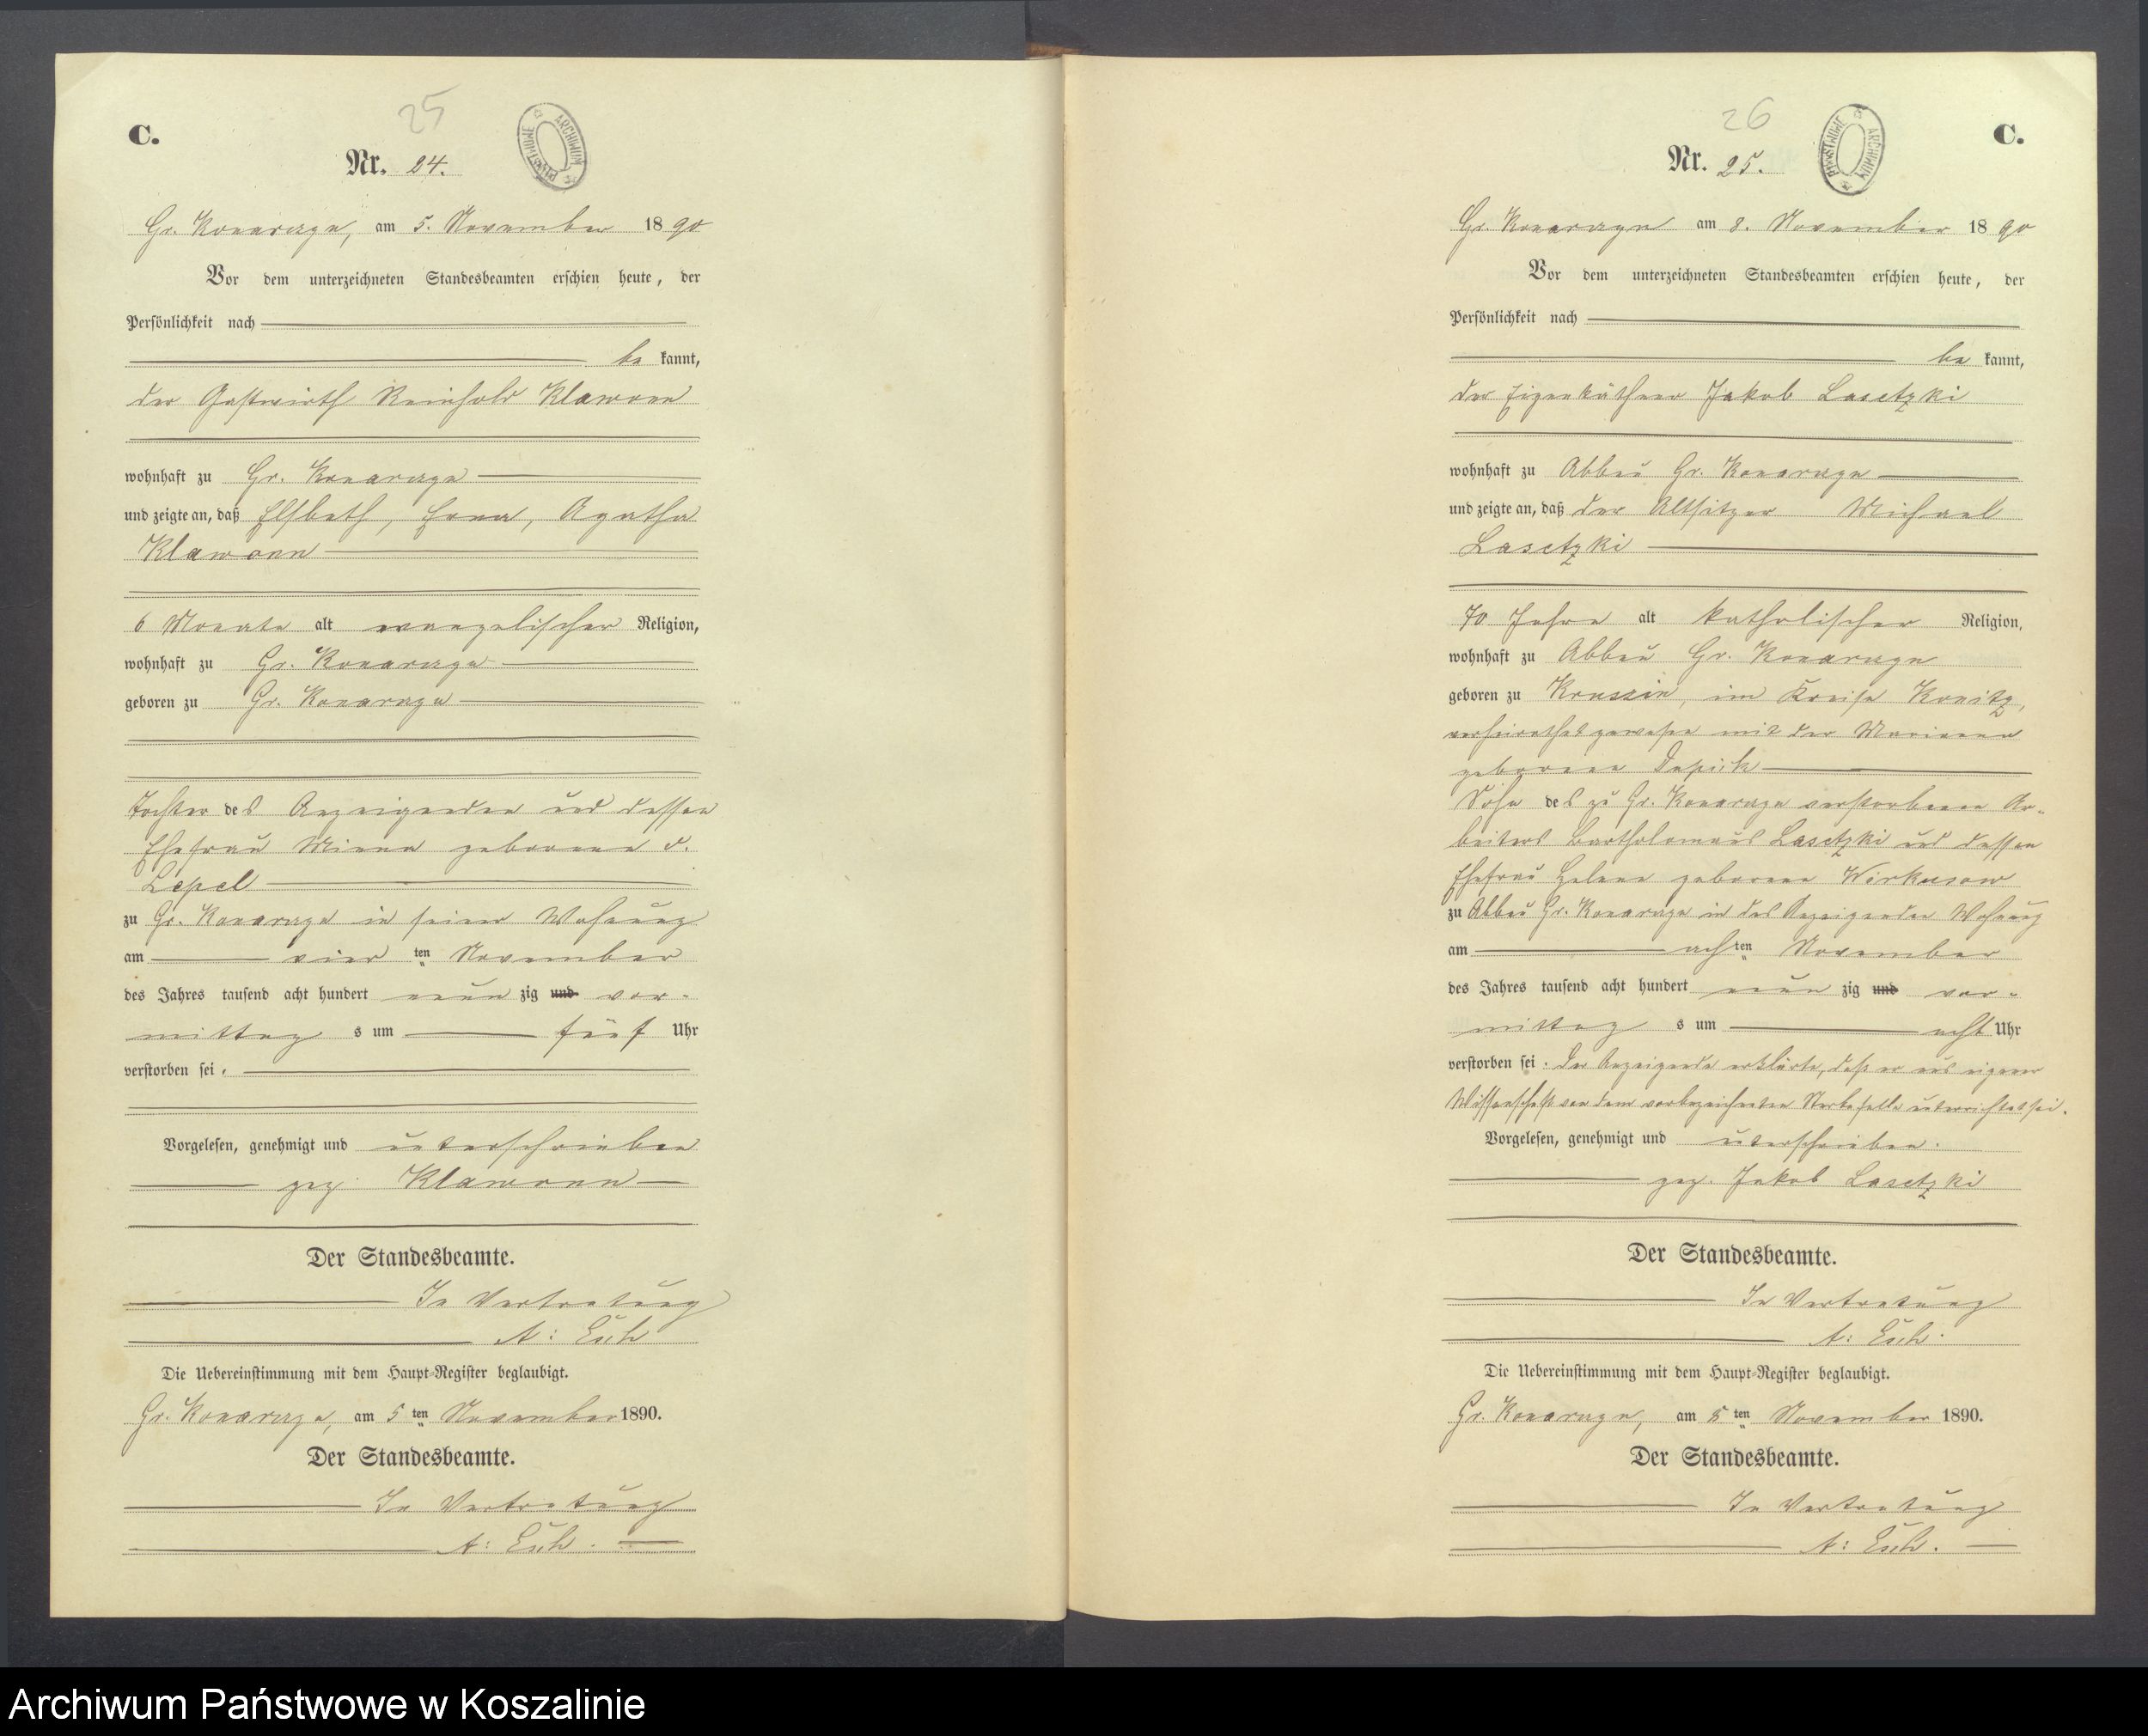 25
C.
Nr. 24.
ARCHIWUM PAŃSTWOWE
Gr. Konarczyn, am 5. November 1890
Vor dem unterzeichneten Standesbeamten erschien heute, der
Persönlichkeit nach
be kannt,
der Gastwirth Reinhold Klawonn
wohnhaft zu Gr. Konarczyn
und zeigte an, daß Elsbeth, Erna, Agatha
Klawonn
6 Monate alt evangelischer Religion,
wohnhaft zu Gr. Konarczyn
geboren zu Gr. Konarczyn
Tochter des Anzeigenden und dessen
Ehefrau Minna geborene v.
Lepel
zu Gr. Konarczyn in seiner Wohnung
am vier ten November
des Jahres tausend acht hundert neun zig und vor-
mittag s um fünf Uhr
verstorben sei.
Vorgelesen, genehmigt und unterschrieben
gez. Klawonn
Der Standesbeamte.
In Vertretung
A:
Die Uebereinstimmung mit dem Haupt-Register beglaubigt.
Gr. Konarczyn, am 5 ten November 1890.
Der Standesbeamte.
In Vertretung
A:
26
C.
Nr. 25.
ARCHIWUM PAŃSTWOWE
Gr. Konarczyn am 8. November 1890
Vor dem unterzeichneten Standesbeamten erschien heute, der
Persönlichkeit nach
be kannt,
der Eigenkäthner Jakob Lasetzki
wohnhaft zu Abbau Gr. Konarczyn
und zeigte an, daß der Altsitzer Michael
Lasetzki
70 Jahre alt katholischer Religion,
wohnhaft zu Abbau Gr. Konarczyn
geboren zu im Kreise Konitz,
verheirathet gewesen mit der Marianna
geborene
Sohn des zu Gr. Konarczyn verstorbenen Ar-
beiters Bartholomäus Lasetzki und dessen
Ehefrau Helene geborene Wirkusow
zu Abbau Gr. Konarczyn in des Anzeigenden Wohnung
am ach ten November
des Jahres tausend acht hundert neun zig und vor-
mittag s um acht Uhr
verstorben sei. Der Anzeigende erklärte, daß er aus eigener
Wissenschaft von dem vorbezeichneten Sterbefalle unterrichtet sei.
Vorgelesen, genehmigt und unterschrieben.
gez. Jakob Lasetzki
Der Standesbeamte.
In Vertretung
A:
Die Uebereinstimmung mit dem Haupt-Register beglaubigt.
Gr. Konarczyn, am 5 ten November 1890.
Der Standesbeamte.
In Vertretung
A:
Archiwum Państwowe w Koszalinie